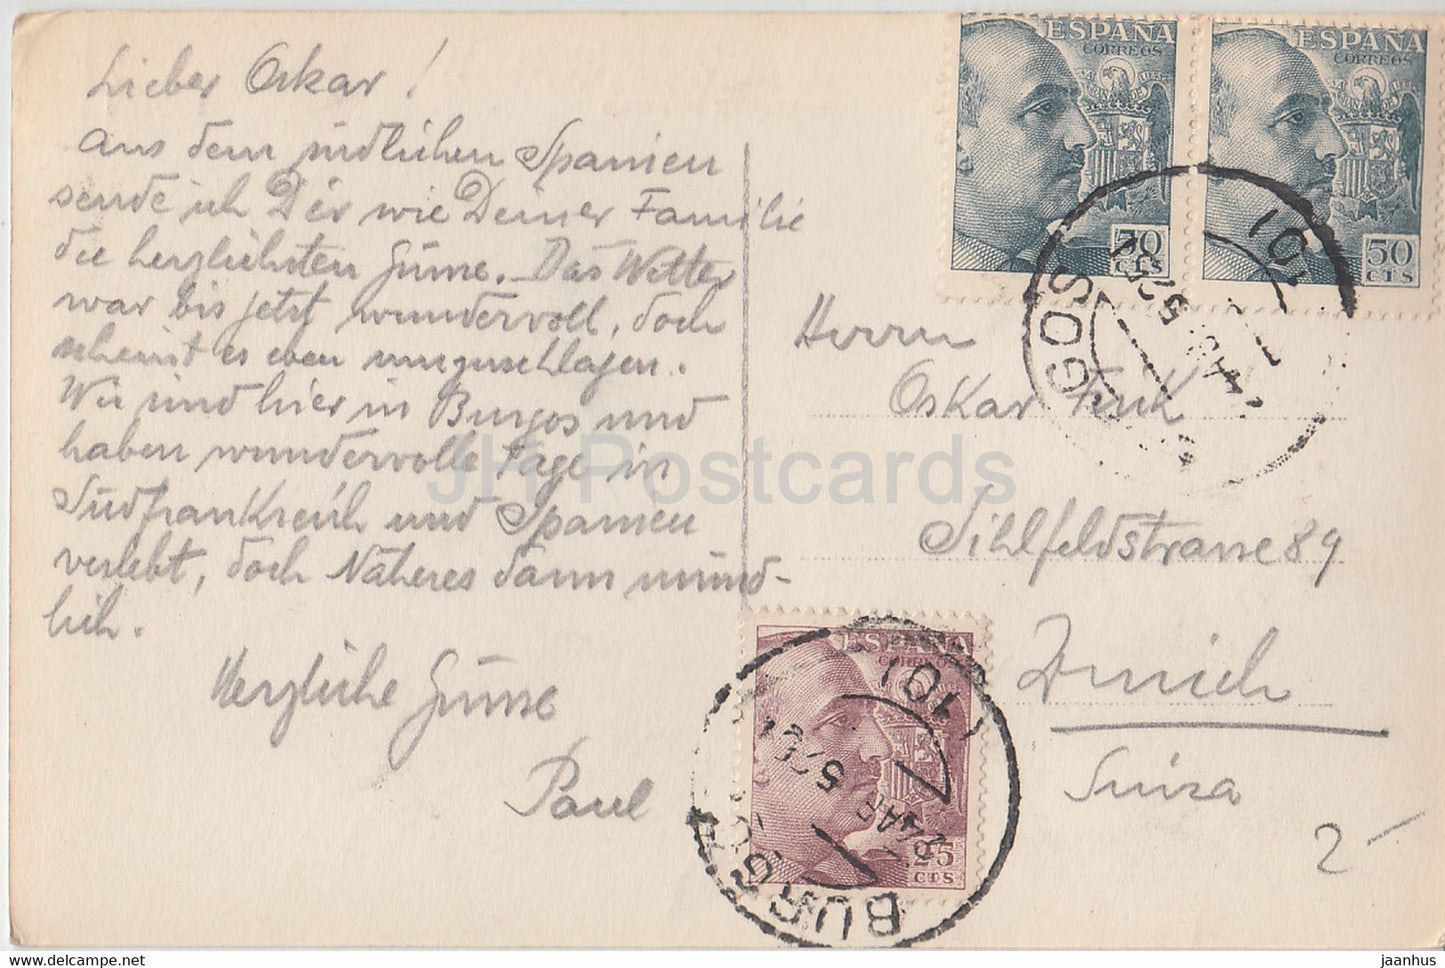 Lieber Oskar!
aus dem südlichen Spanien
sende ich Dir wie Deiner Familie
die herzlichsten Grüsse. Das Wetter
war bis jetzt wundervoll, doch
scheint es eben umzuschlagen.
Wir sind hier in Burgos und
haben wundervolle Tage in
Südfrankreich und Spanien
verlebt, doch Näheres dann münd-
lich.
Herzliche Grüsse
Paul
ESPAÑA
CORREOS
50
CTS
ESPAÑA
CORREOS
50
CTS
Herrn
Oskar
Sihlfeldstrasse 89
Zürich
Suiza
2-
ESPAÑA
CORREOS
25
CTS
BURGOS
JH Postcards
www.delcampe.net
jaanhus